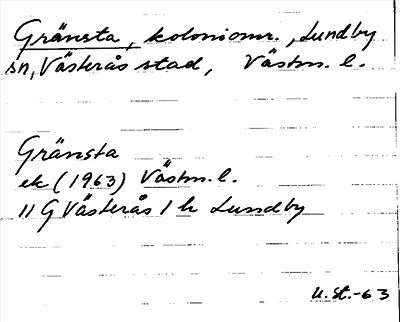 Gränsta, koloniomr., Lundby
sn, Västerås stad, Västm. l.
Gränsta
ek (1963) Västm. l.
11 G Västerås 1 h Lundby
U. St. -63